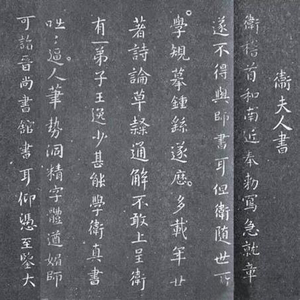 衛夫人書
衛稽首和南近奉勅寫急就章
遂不得與師書耳但衛随世所
學規摹鍾繇遂歷多載年廿
著詩論草隸通解不敢上呈衛
有一弟子王逸少甚能學衛真書
咄〻逼人筆勢洞精字體遒媚師
可詣晉尚書館書耳仰憑至鑒大